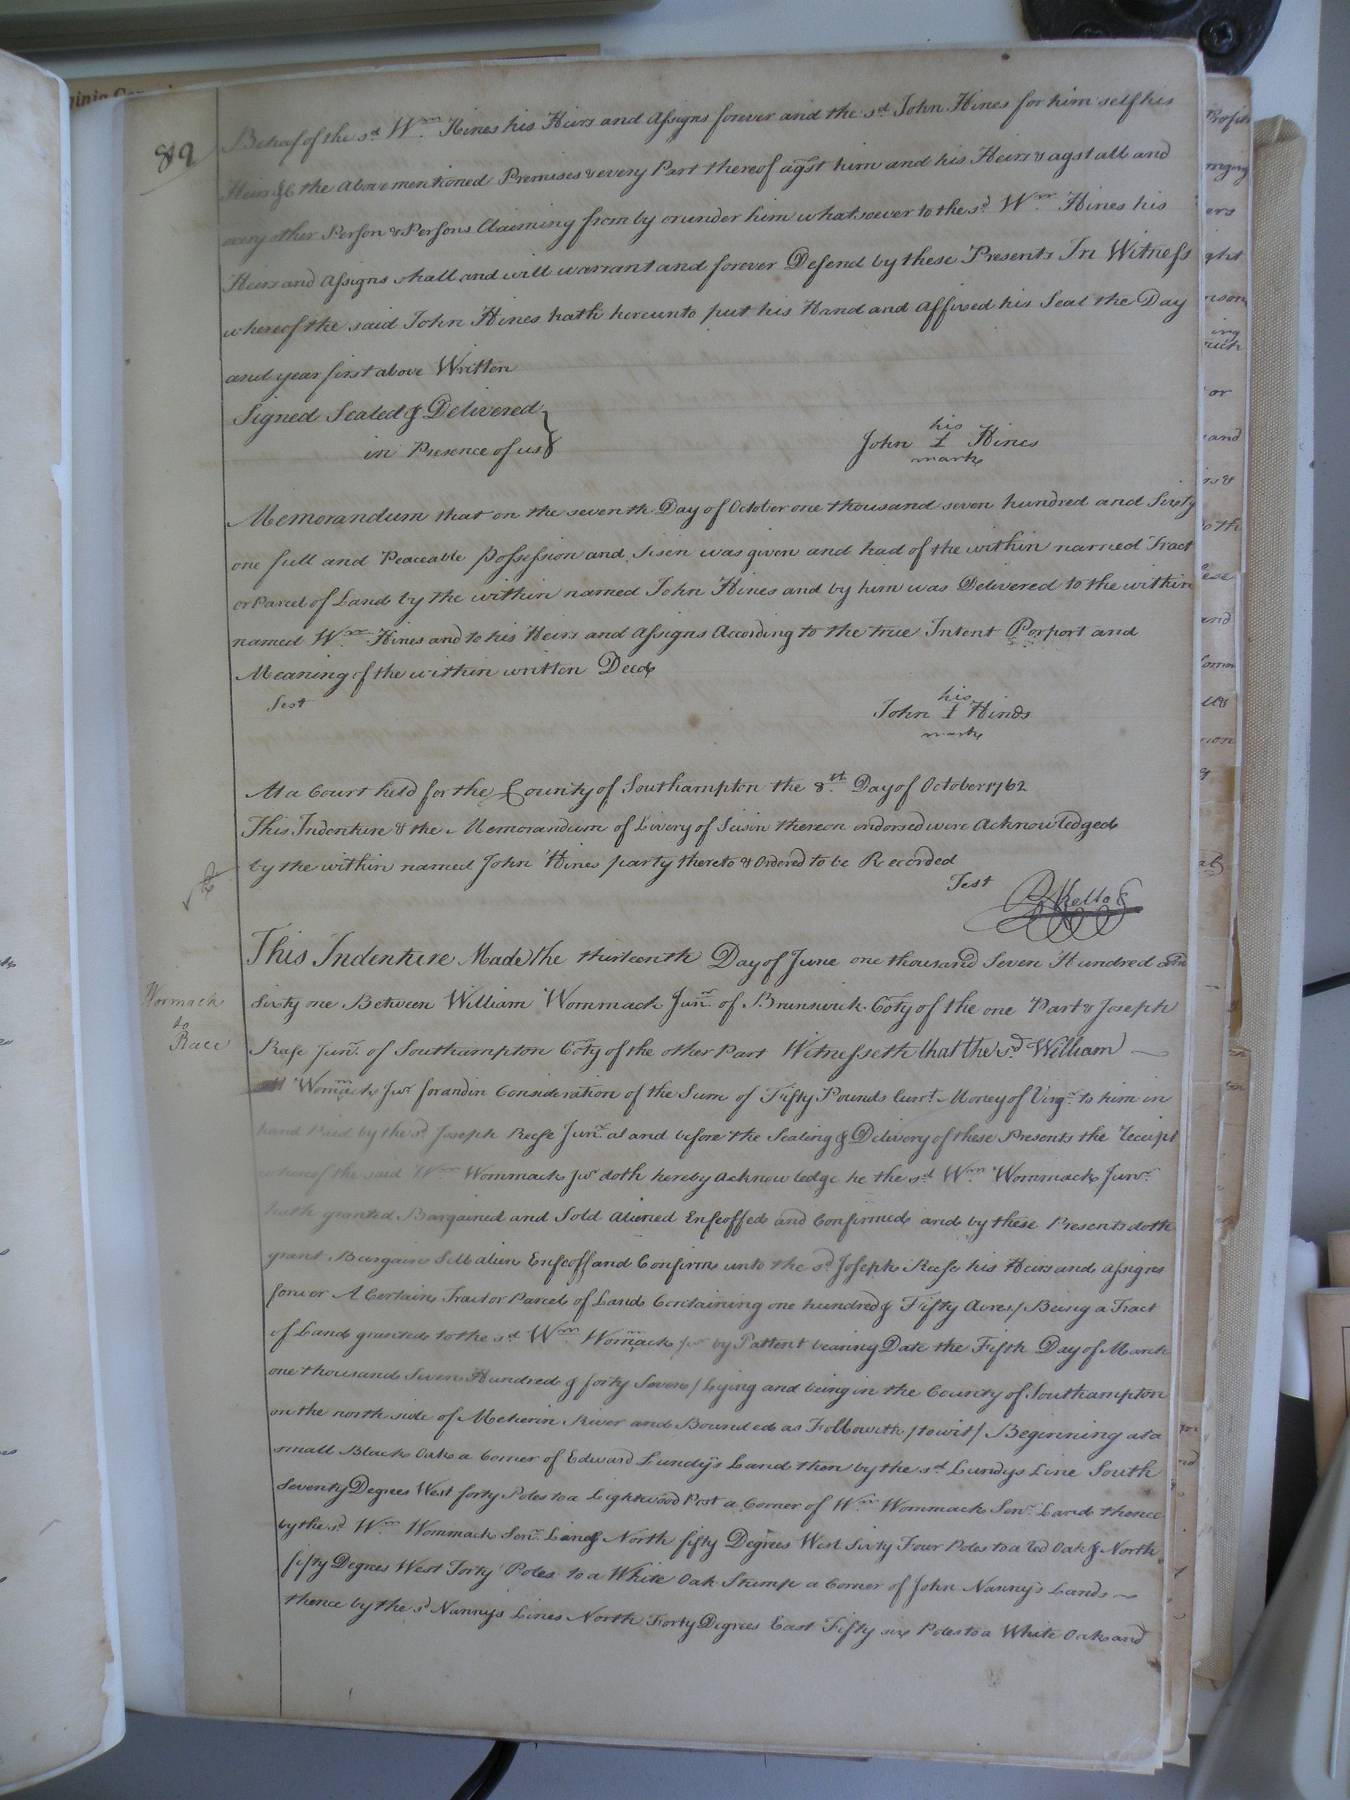 82
Behalf of the sd Wm. Hines his Heirs and Assigns forever and the sd John Hines for him self his
Heirs &c the Above mentioned Premises & every Part thereof agst him and his Heirs & agst all and
every other Person & Persons Claiming from by or under him whatsoever to the sd Wm. Hines his
Heirs and Assigns shall and will warrant and forever Defend by these Presents In Witness
whereof the said John Hines hath hereunto put his Hand and Affixed his Seal the Day
and year first above Written
Signed Sealed & Delivered
in Presence of us
his
John I Hines
mark
Memorandum that on the seventh Day of October one thousand seven hundred and Sixty
one full and Peaceable Possession and Sisen was given and had of the within named Tract
or Parcel of Land by the within named John Hines and by him was Delivered to the within
named Wm. Hines and to his Heirs and Assigns According to the true Intent Porport and
Meaning of the within written Deed
Test
his
John I Hinds
mark
At a Court held for the County of Southampton the 8th Day of October 1762
This Indenture & the Memorandum of Livery of Seisin thereon endorsed were Acknowledged
by the within named John Hines party thereto & Ordered to be Recorded
Test
RKello C
This Indenture Made the thirteenth Day of June one thousand Seven Hundred and
Wommack
to
Race
Sixty one Between William Wommack Junr. of Brunswick Coty of the one Part & Joseph
Rese Junr. of Southampton Coty of the other Part Witnesseth that the sd William
Wommack Jur for and in Consideration of the Sum of Fifty Pounds Curt. Money of Virga. to him in
hand Paid by the sd Joseph Reese Junr. at and before the Sealing & Delivery of these Presents the Receipt
whereof the said Wm Wommack Jur doth hereby Acknowledge he the sd Wm. Wommack Junr.
hath granted Bargained and Sold Aliened Enfeoffed and Confirmed and by these Presents doth
grant Bargain Sell alien Enfeoff and Confirm unto the sd Joseph Reese his Heirs and Assigns
forever A Certain Tract or Parcel of Land Containing one hundred & Fifty Acres / Being a Tract
of Land granted to the sd Wm Wommack Jur by Pattent bearing Date the Fifth Day of March
one thousand Seven Hundred & forty Seven / Lying and being in the County of Southampton
on the north side of Meherin River and Bounded as Followeth / towit / Beginning at a
small Black Oak a Corner of Edward Lundy's Land then by the sd Lundys Line South
Seventy Degrees West forty Poles to a Lightwood Post a Corner of Wm Wommack Senr. Land thence
by the sd Wm Wommack Senr. Land North fifty Degrees West Sixty Four Poles to a red Oak & North
fifty Degrees West Forty Poles to a White Oak Stump a Corner of John Nanny's Lands
thence by the sd Nannys Lines North Forty Degrees East Fifty six Poles to a White Oak and